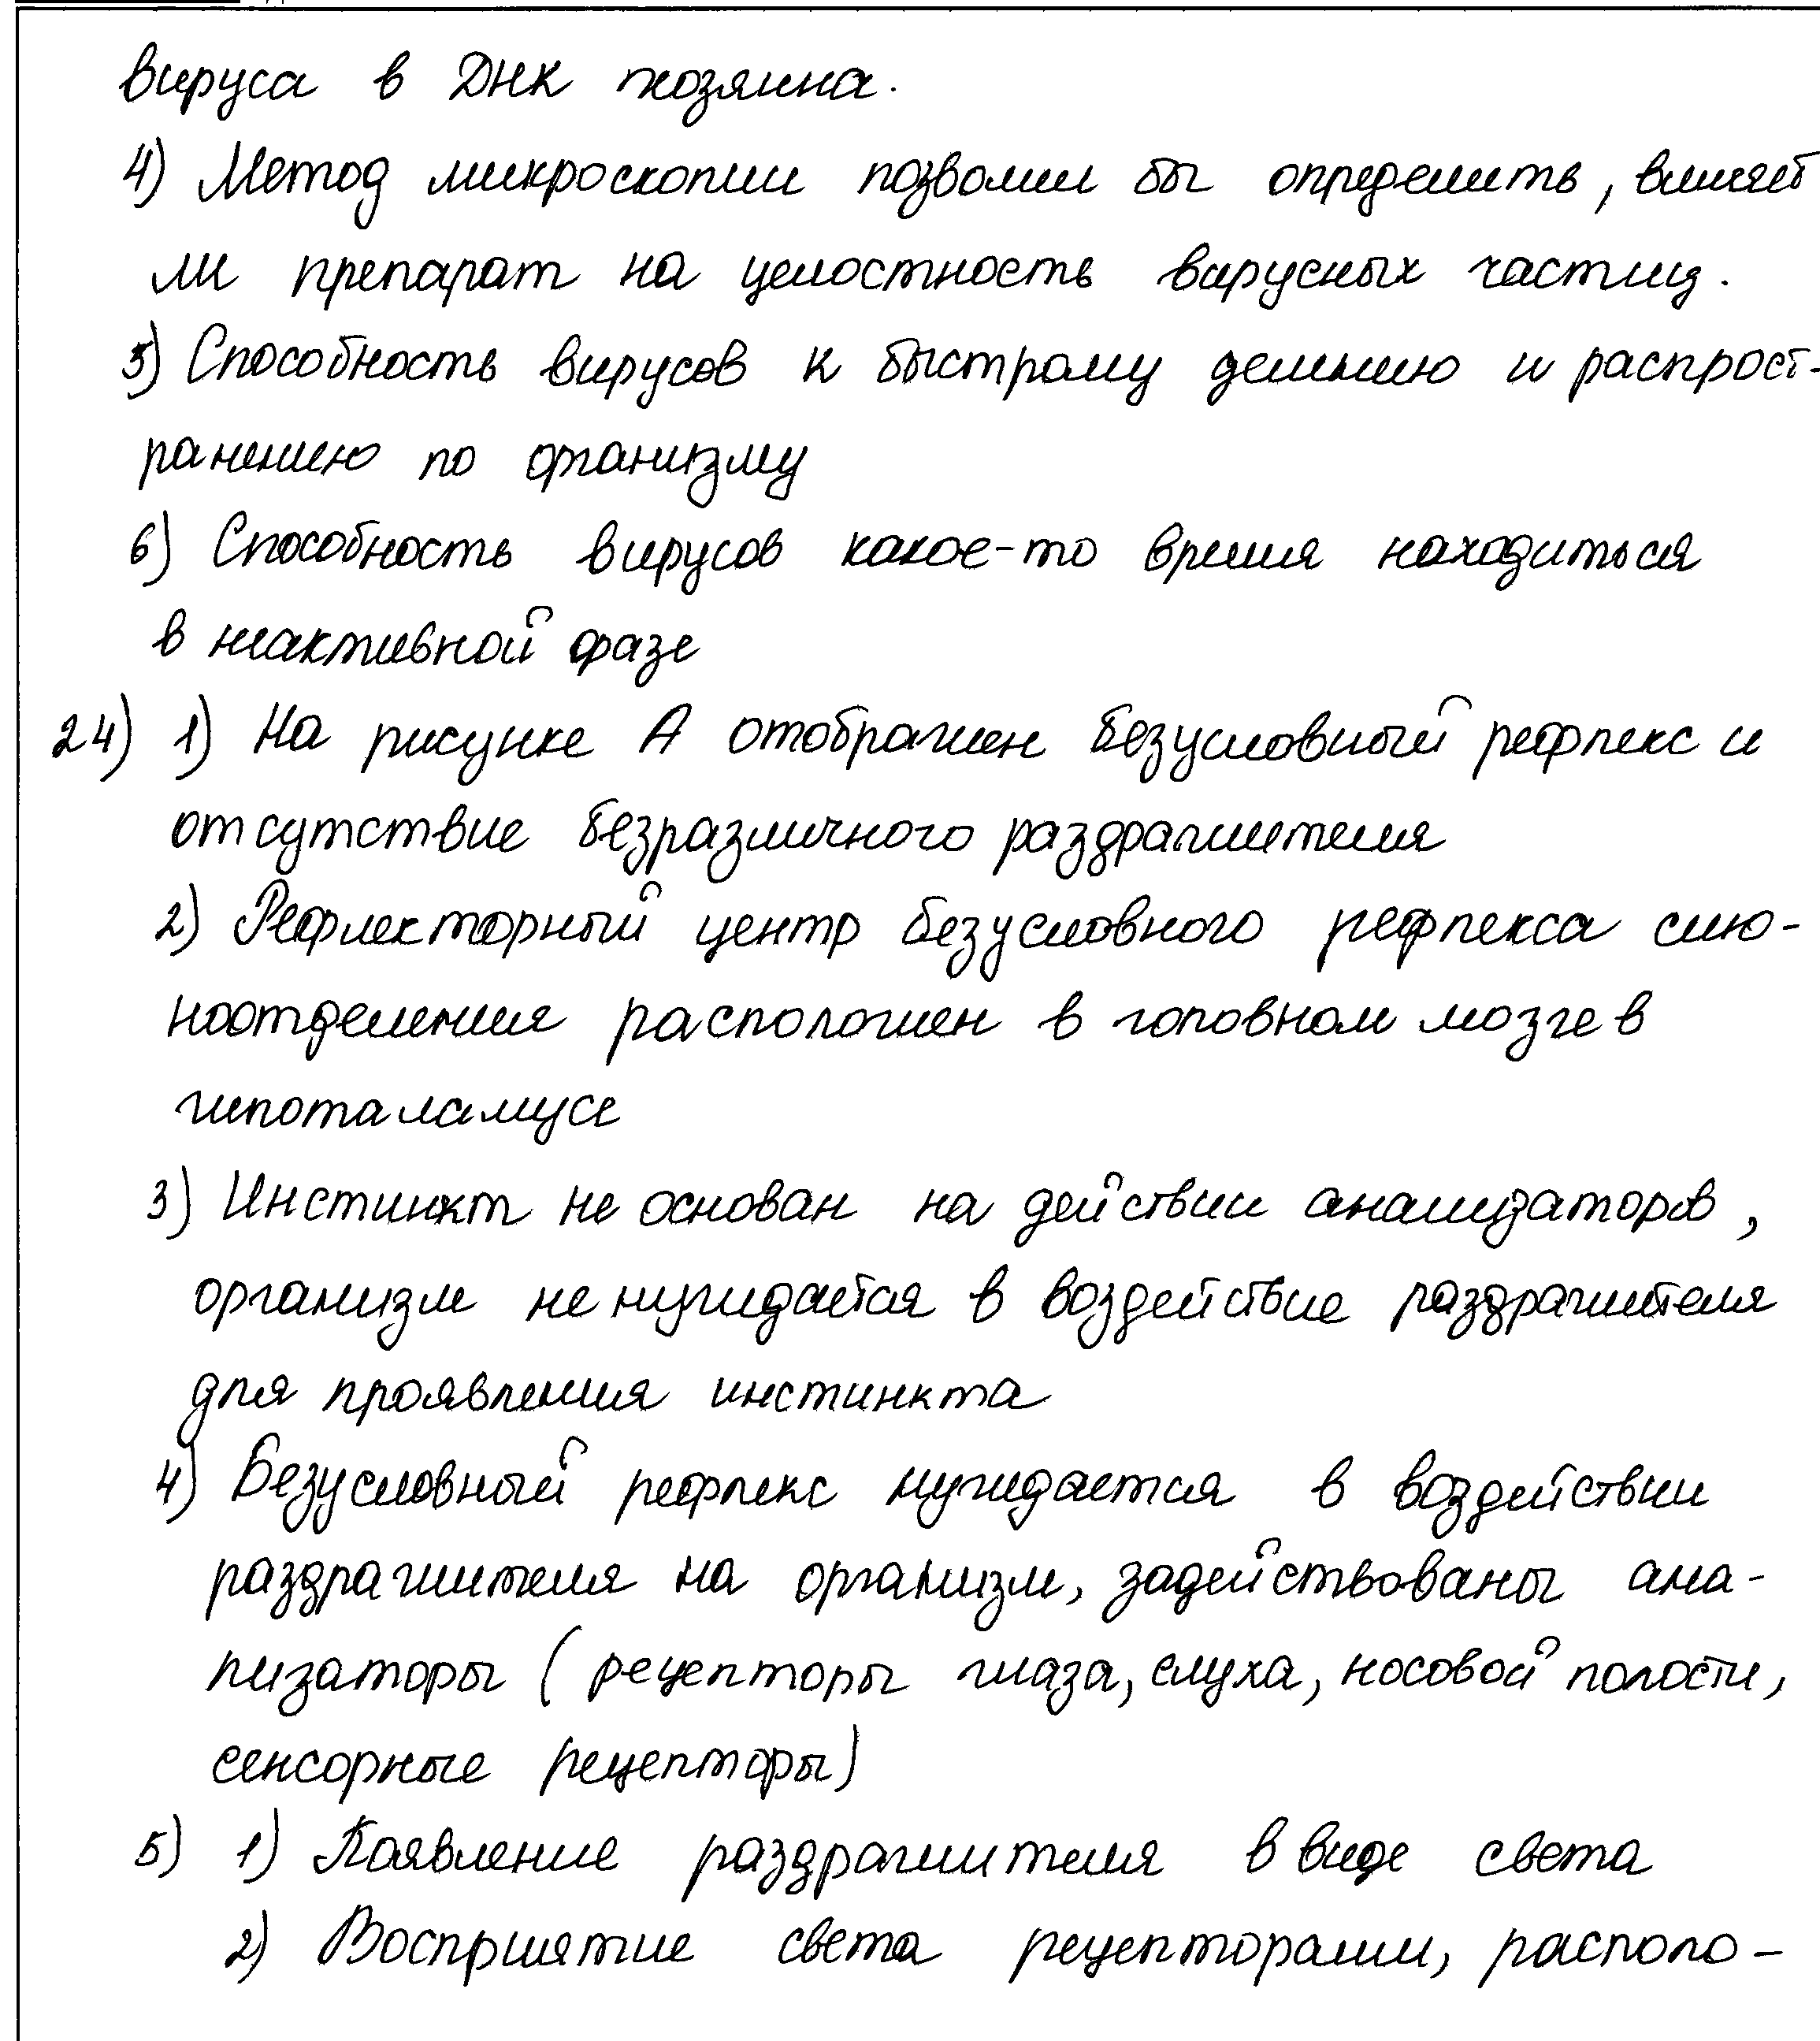 вируса в ДНК хозяина.
4) Метод микроскопии позволил бы определить, влияет
ли препарат на целостность вирусных частиц.
5) Способность вирусов к быстрому делению и распрост-
ранению по организму
6) Способность вирусов какое-то время находиться
в неактивной фазе
24) 1) На рисунке А отображен безусловный рефлекс и
отсутствие безразличного раздражителя
2) Рефлекторный центр безусловного рефлекса слю-
ноотделения расположен в головном мозге в
гипоталамусе
3) Инстинкт не основан на действии анализаторов,
организм не нуждается в воздействие раздражителя
для проявления инстинкта
4) Безусловный рефлекс нуждается в воздействии
раздражителя на организм, задействованы ана-
лизаторы (рецепторы глаза, слуха, носовой полости,
сенсорные рецепторы)
5) 1) Появление раздражителя в виде света
2) Восприятие света рецепторами, располо-